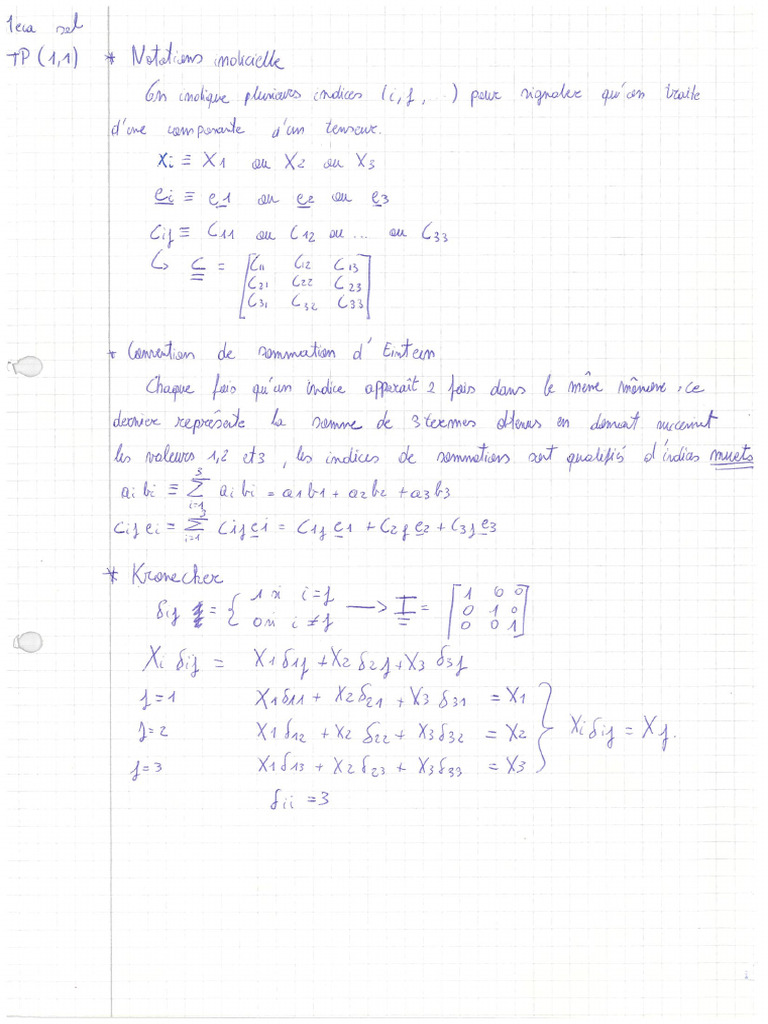 TP (1,1) * Notations indicielle
On indique plusieurs indices (i, j, ...) pour signaler qu'on traite
d'une composante d'un tenseur.
Xi ≡ X1 ou X2 ou X3
e̲i ≡ e̲1 ou e̲2 ou e̲3
Cij ≡ C11 ou C12 ou ... ou C33
↳ C̳ = [C11 C12 C13
C21 C22 C23
C31 C32 C33]
* Convention de sommation d'Eintein
Chaque fois qu'un indice apparaît 2 fois dans le même mônome, ce
dernier représente la somme de 3 termes obtenus en donnant
les valeurs 1,2 et 3, les indices de sommations sont qualifiés d'indices muets
ai bi ≡ Σ(i=1→3) ai bi = a1b1 + a2b2 + a3b3
Cij ei = Σ(i=1→3) Cij e̲i = C1j e̲1 + C2j e̲2 + C3j e̲3
* Kronecher
δij = { 1 si i=j ; 0 si i≠j → I̳ = [1 0 0 ; 0 1 0 ; 0 0 1]
Xi δij = X1 δ1j + X2 δ2j + X3 δ3j
j=1 X1δ11 + X2δ21 + X3 δ31 = X1
j=2 X1δ12 + X2 δ22 + X3δ32 = X2 } Xi δij = Xj.
j=3 X1δ13 + X2δ23 + X3δ33 = X3
δii = 3